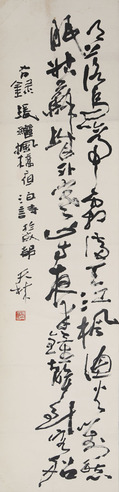 月落烏啼霜滿天江楓漁火對愁
眠姑蘇城外寒山寺夜半鐘聲到客船
右錄張繼楓橋宿泊詩於